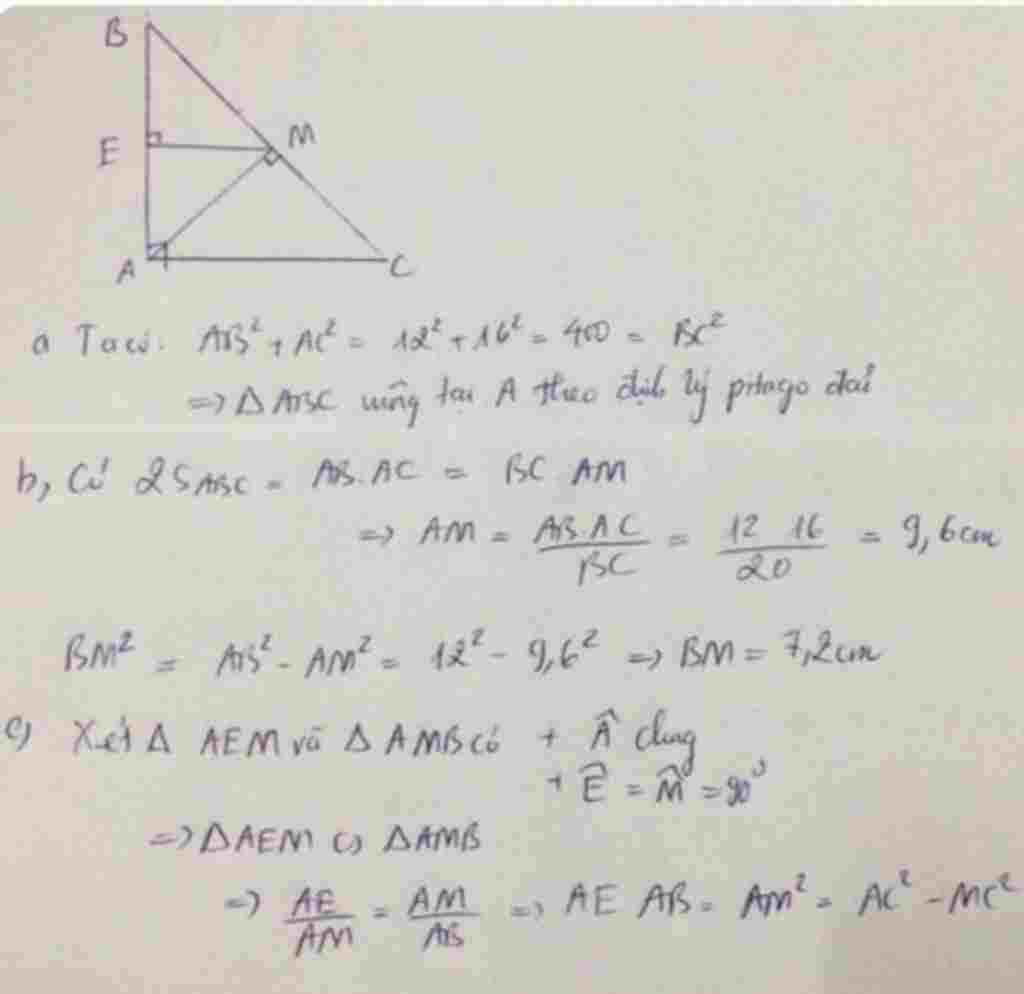 B
E M
A C
a Ta có. AB² + AC² = 12² + 16² = 400 = BC²
=> Δ ABC vuông tại A theo định lý pitago đảo
b, Có 2S ABC = AB.AC = BC AM
=> AM = AB.AC / BC = 12 16 / 20 = 9,6cm
BM² = AB² - AM² = 12² - 9,6² => BM = 7,2cm
c) Xét Δ AEM và Δ AMB có + Â chung
+ Ê = M̂ = 90°
=> Δ AEM ∽ Δ AMB
=> AE / AM = AM / AB => AE AB = AM² = AC² - MC²